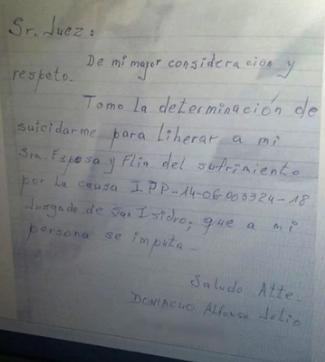 Sr. Juez:
De mi mayor consideración y
respeto.
Tomo la determinación de
suicidarme para Liberar a mi
Sra. Esposa y Flia del sufrimiento
por la causa I.P.P-14-06-003324-18
Juzgado de San Isidro; que a mi
persona se imputa.
Saludo Atte.
Alfonso Julio